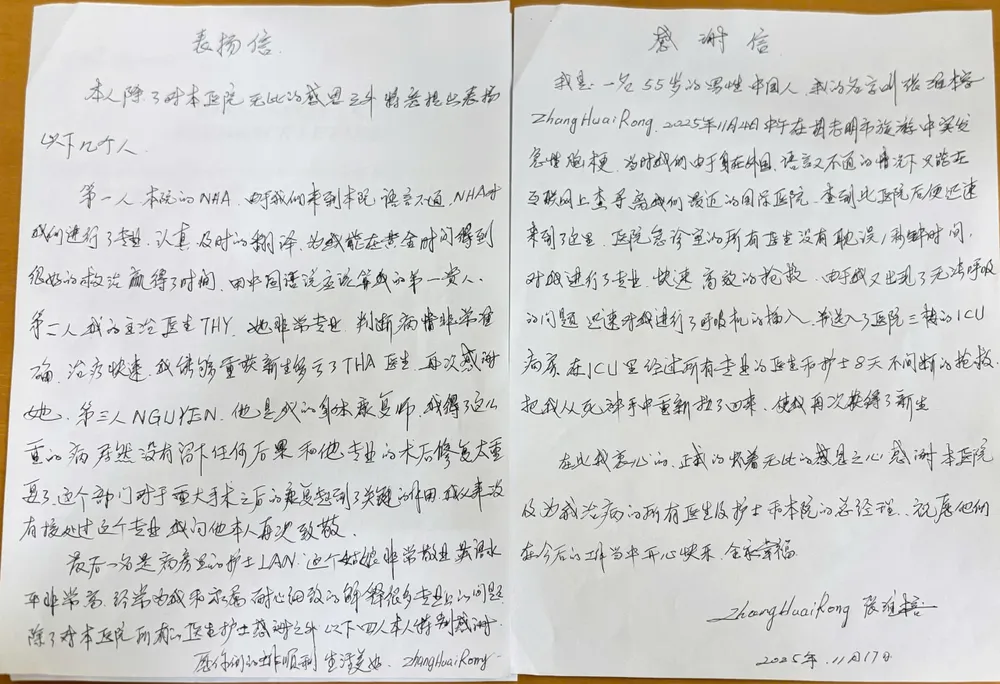 表扬信
本人除了对本医院无比的感恩之外 特意提出表扬
以下几个人.
第一人 本院的NHA. 由于我们来到本院 语言不通. NHA对
我们进行了专业. 认真. 及时的翻译. 为我能在黄金时间得到
很好的救治赢得了时间. 用中国话说应该算我的第一贵人.
第二人 我的主治医生THY. 她非常专业 判断病情非常准
确. 治疗快速. 我能够重获新生多亏了THA医生. 再次感谢
她. 第三人NGUYEN. 他是我的身体康复师. 我得了这么
重的病 居然没有留下任何后果 和他专业的术后修复太重
要了. 这个部门对于重大手术之后的康复起到了关键的作用. 我从来没
有接触过这个专业 我向他本人再次致敬.
最后一名是病房里的护士LAN. 这个姑娘非常敬业 英语水
平非常高. 经常为我和家属耐心细致的解释很多专业上的问题.
除了对本医院所有的医生护士感谢之外 以下四人本人特别感谢.
愿你们的工作顺利 生活美好. ZhangHuaiRong
感谢信
我是一名55岁的男性中国人. 我的名字叫张
ZhangHuaiRong. 2025年11月4日中午在胡志明市旅游中突发
急性脑梗. 当时我们由于身在外国. 语言又不通的情况下只能在
互联网上查寻离我们最近的国际医院. 查到此医院后便迅速
来到了这里. 医院急诊室的所有医生没有耽误1秒钟时间.
对我进行了专业 快速 高效的抢救. 由于我又出现了无法呼吸
的问题 迅速对我进行了呼吸机的插入. 并送入了医院三楼的ICU
病房. 在ICU里经过所有专业的医生和护士8天不间断的抢救.
把我从死神手中重新拉了回来. 使我再次获得了新生
在此我衷心的. 真诚的怀着无比的感恩之心感谢本医院
及为我治病的所有医生及护士和本院的总经理. 祝愿他们
在今后的工作当中开心快乐. 全家幸福
ZhangHuaiRong 张
2025年. 11月17日